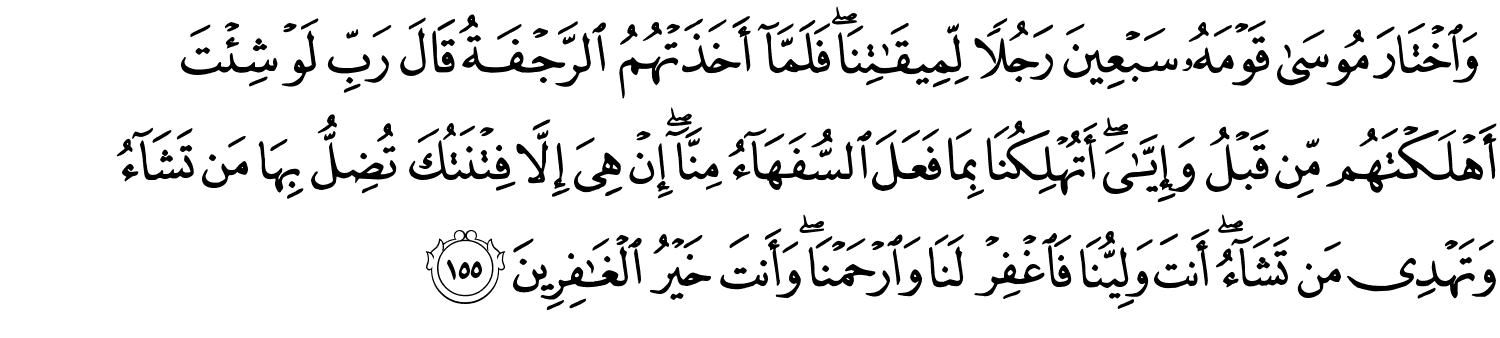 وَٱخْتَارَ مُوسَىٰ قَوْمَهُۥ سَبْعِينَ رَجُلًا لِّمِيقَـٰتِنَا ۖ فَلَمَّآ أَخَذَتْهُمُ ٱلرَّجْفَةُ قَالَ رَبِّ لَوْ شِئْتَ
أَهْلَكْتَهُم مِّن قَبْلُ وَإِيَّـٰىَ ۖ أَتُهْلِكُنَا بِمَا فَعَلَ ٱلسُّفَهَآءُ مِنَّآ ۖ إِنْ هِىَ إِلَّا فِتْنَتُكَ تُضِلُّ بِهَا مَن تَشَآءُ
وَتَهْدِى مَن تَشَآءُ ۖ أَنتَ وَلِيُّنَا فَٱغْفِرْ لَنَا وَٱرْحَمْنَا ۖ وَأَنتَ خَيْرُ ٱلْغَـٰفِرِينَ ١٥٥